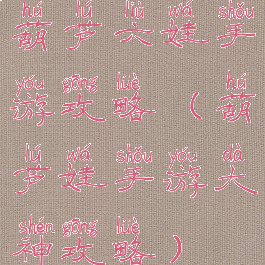 hú lú liù wá shǒu
葫芦六娃手
yóu gōng lüè hú
游攻略(葫
lú wá shǒu yóu dà
芦娃手游大
shén gōng lüè
神攻略)